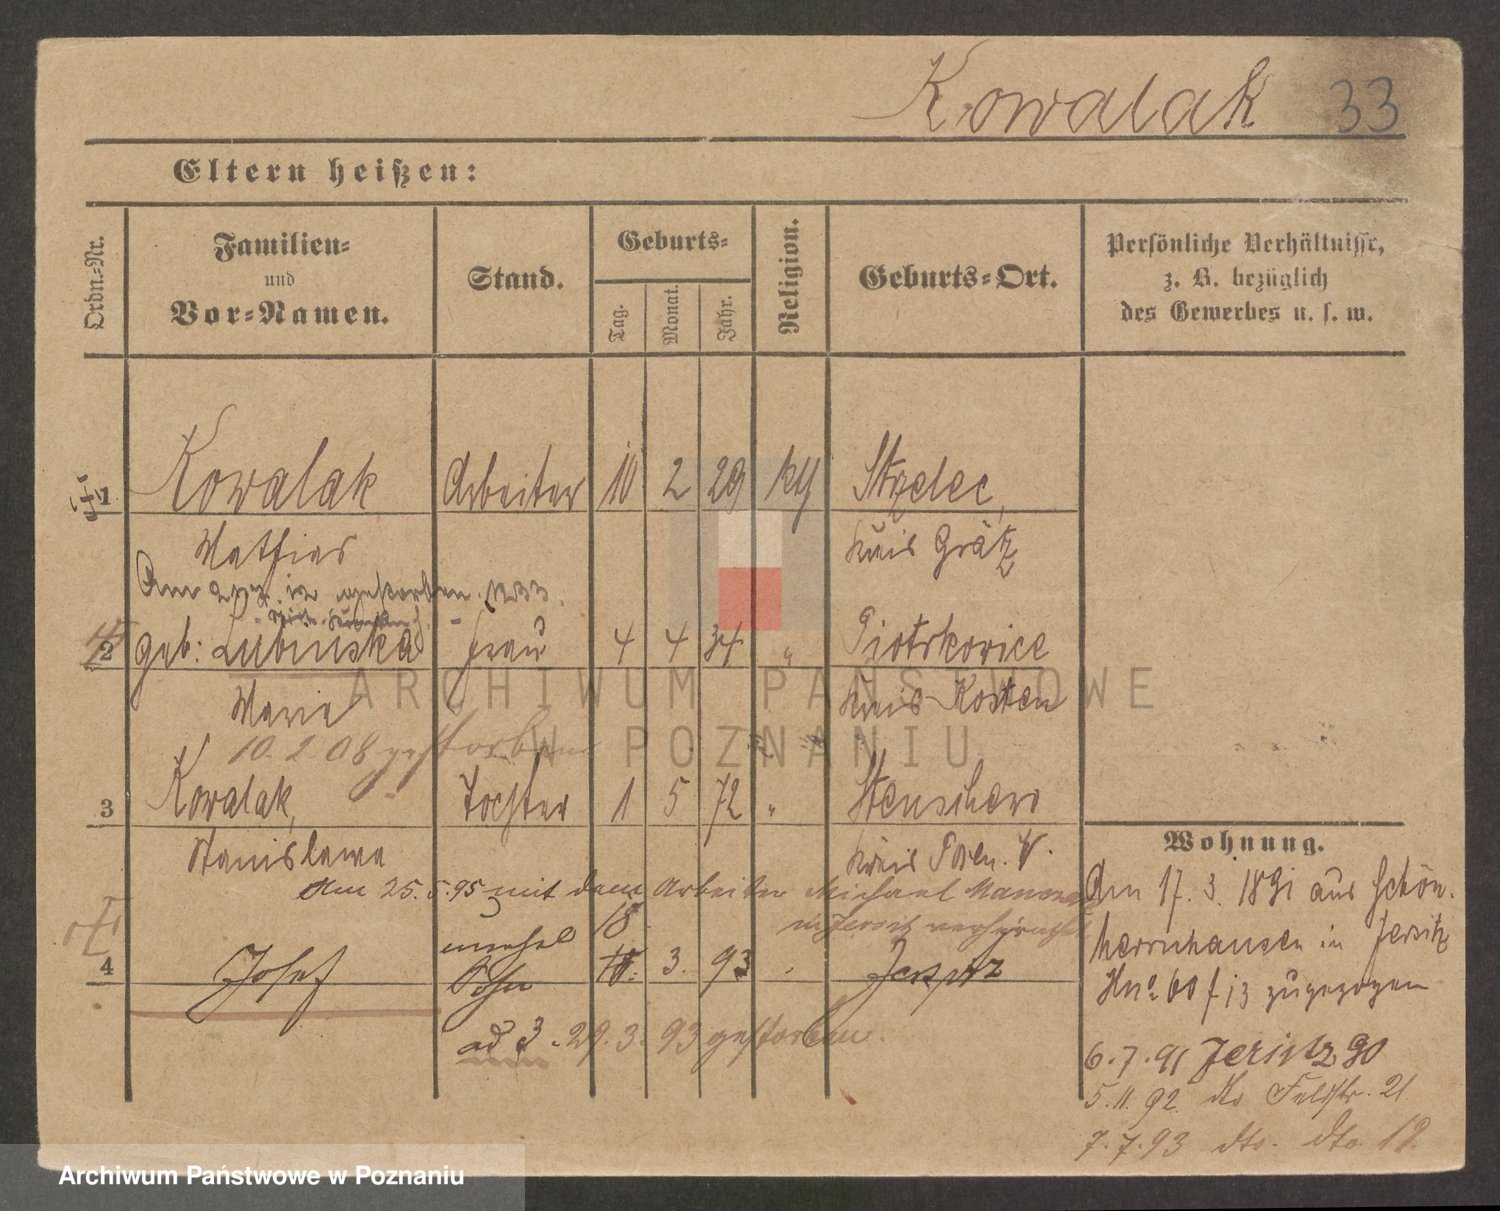 Kowalak 33
Eltern heißen:
Ordn.-Nr.
Familien-
und
Vor-Namen.
Stand.
Geburts-
Tag.
Monat.
Jahr.
Religion.
Geburts-Ort.
Persönliche Verhältnisse,
z. B. bezüglich
des Gewerbes u. s. w.
1 Kowalak Arbeiter 10 2 29 kth Strzelec,
Mathias Kreis Grätz
Am 2 gestorben.
2 geb: Lubinska Frau 4 4 34 " Piotrkovice
Marie Kreis Kosten
10. 2. 08 gestorben
3 Kowalak, Tochter 1 5 72 " Stenschewo
Stanislawa Kreis Posen. W.
Am 25. 5. 95 mit dem Arbeiter Michael
in Jersitz verheirathet
unehel 18
4 Josef Sohn 3. 93 Jersitz
ad 3. 29. 3. 93 gestorben.
Wohnung.
Am 17. 3. 1891 aus Schön-
herrnhausen in Jersitz
Hno 60 f 13 zugezogen
6. 7. 91 Jersitz 90
5. 11. 92 dto Feldstr. 21
7. 7. 93 dto. dto. 19.
ARCHIWUM PAŃSTWOWE
W POZNANIU
Archiwum Państwowe w Poznaniu